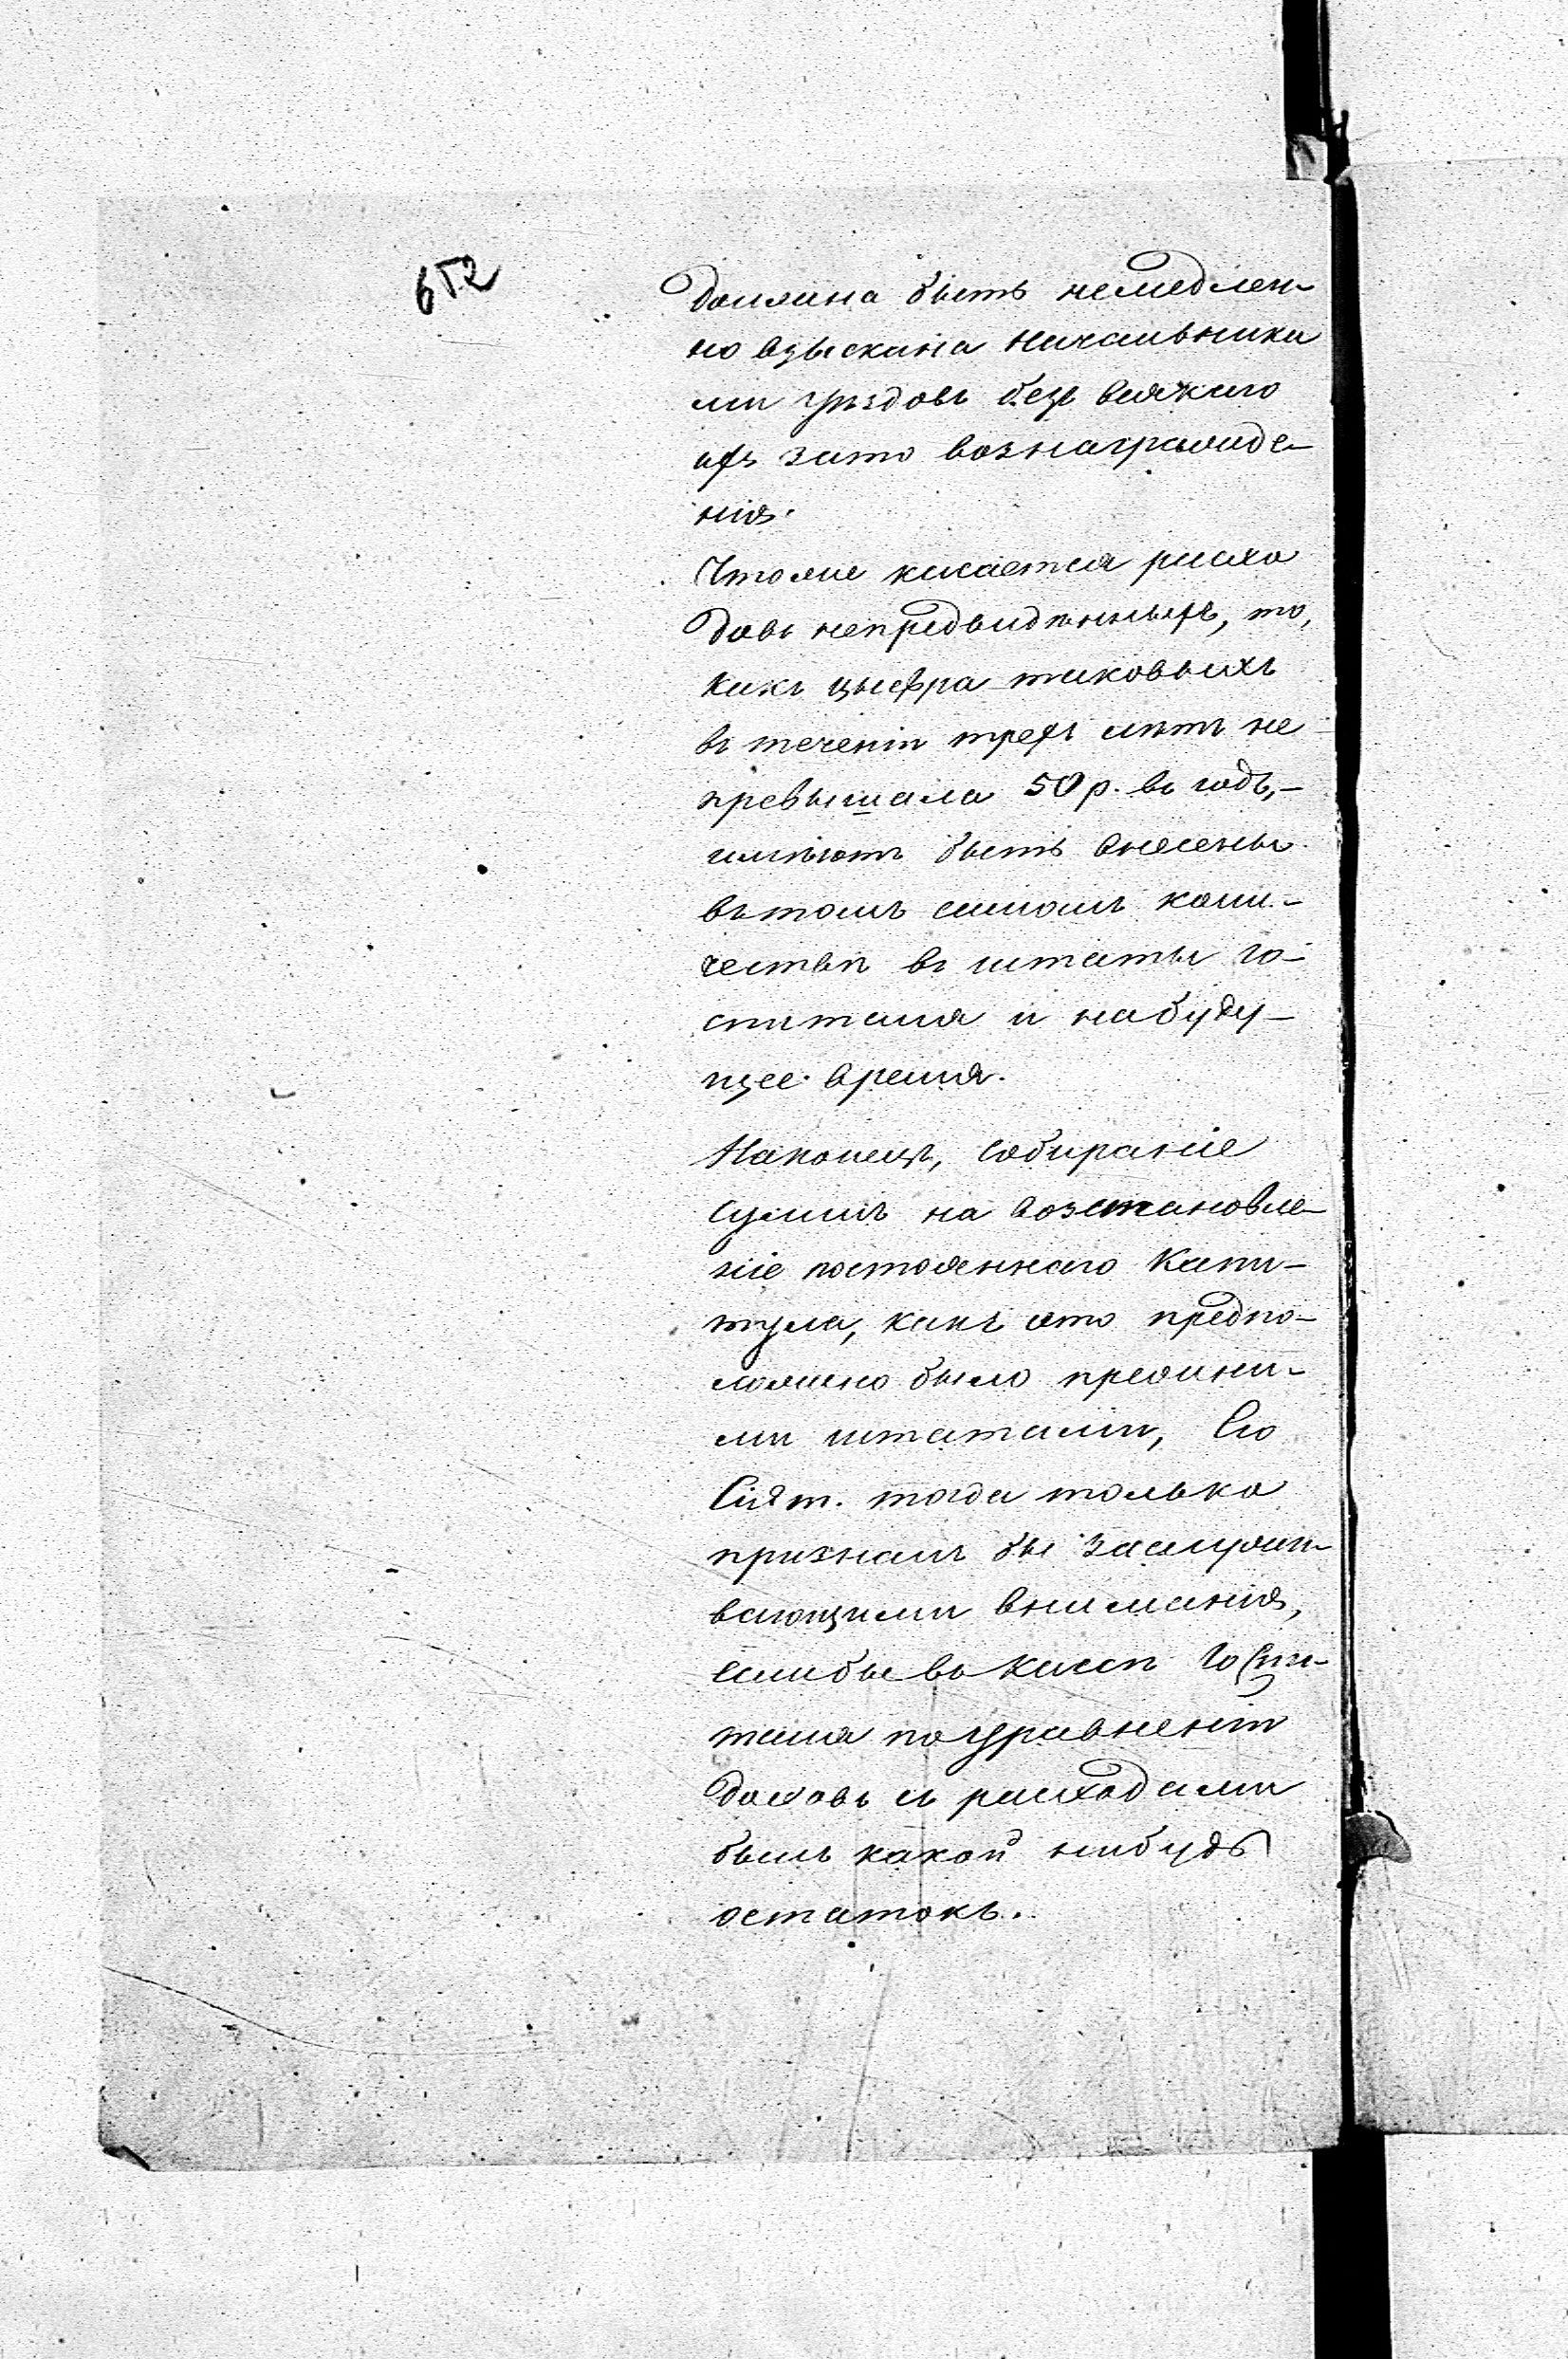 652
должна быть немедлен-
но взыскана начальника
ми уѣздовъ безъ всякаго
ихъ зато вознагражде-
нія.
Чтоже касается расхо
довъ непредвидѣнныхъ, то,
какъ цыфра таковыхъ
въ теченіи трехъ лѣтъ не
превышала 50 р. въ годъ,-
имѣютъ быть внесены
въ томъ самомъ коли-
чествѣ въ штаты го-
спиталя и набуду-
щее время.
Наконецъ, собираніе
суммъ на возстановле-
ніе постояннаго Капи-
тула, какъ это предпо-
ложено было прежни-
ми штатами, Его
Сіят. тогда только
призналъ бы заслужи-
вающими вниманія,
еслибы въ кассѣ Госпи-
таля по уравненіи
доховъ съ расходами
былъ какой нибудь
остатокъ.